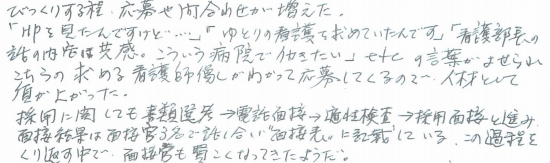 びっくりする程、応募や問合わせが増えた。
「HPを見たんですけど…」「ゆとりの看護を求めていたんです」「看護部長の
話の内容に共感。こういう病院で働きたい」etc の言葉がよせられ
こちらの求める看護師像しがわかって応募してくるので、人材として
質が上がった。
採用に関しても書類選考→電話面接→適性検査→採用面接と進み
面接結果は面接官3名で話し合い"面接表"に記載している。この過程を
くり返す中で、面接官も賢くなってきたようだ。